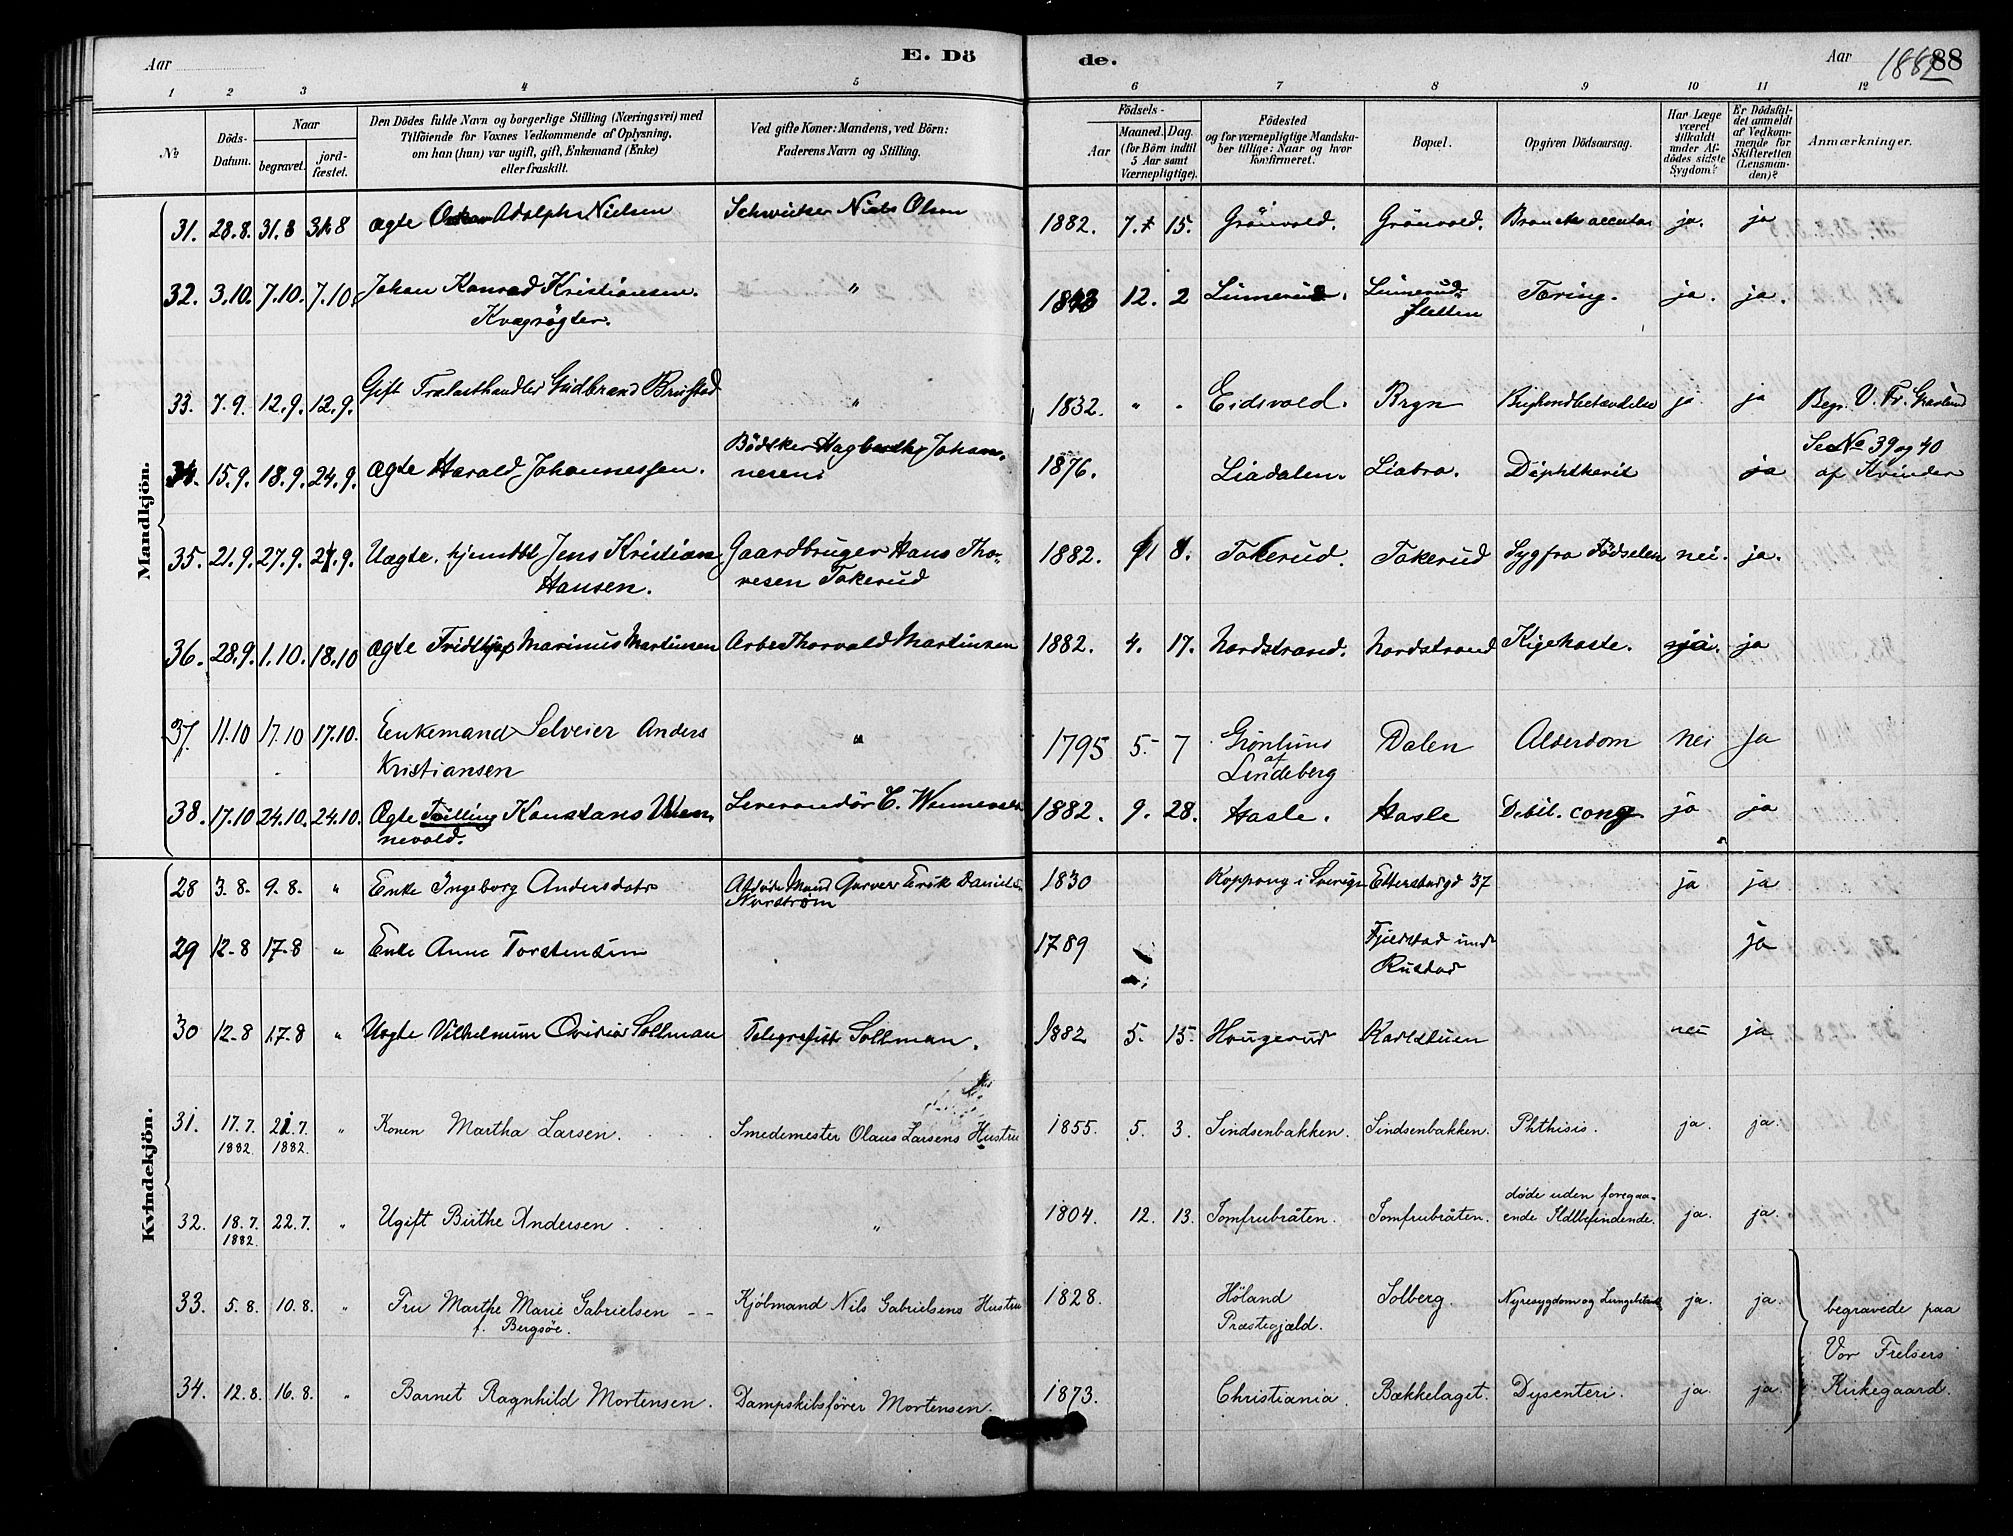 Aar
E. Dö
de.
Aar 1882
88
1 2 3 4 5 6 7 8 9 10 11 12
№
Döds-
Datum.
Naar
begravet.
jord-
fæstet.
Den Dödes fulde Navn og borgerlige Stilling (Næringsvei) med
Tilföiende for Voxnes Vedkommende af Oplysning,
om han (hun) var ugift, gift, Enkemand (Enke)
eller fraskilt.
Ved gifte Koner: Mandens, ved Börn:
Faderens Navn og Stilling.
Födsels-
Aar
Maaned. Dag.
(for Börn indtil
5 Aar samt
Værnepligtige).
Födested
og for værnepligtige Mandska-
ber tillige: Naar og hvor
Konfirmeret.
Bopæl.
Opgiven Dödsaarsag.
Har Læge
været
tilkaldt
under Af-
dödes sidste
Sygdom?
Er Dödsfal-
det anmeldt
af Vedkom-
mende for
Skifteretten
(Lensman-
den)?
Anmærkninger.
Mandkjön.
31. 28.8. 31.8 31.8 ægte Oskar Adolph Nielsen Schweitser Niels Olsen 1882. 7. 15. Grönvold. Grönvold. ja. ja
32. 3.10. 7.10. 7.10. Johan Konrad Kristiansen. " 12. 2 Linnerud. Linnerud- Tæring. ja. ja.
Kvægrögter. sletten
33. 7.9. 12.9. 12.9. Gift Trælasthandler Gudbrand Brustad " 1832. " " Eidsvold. Bryn ja ja Begr. V. Fr. Gravlund
34. 15.9. 18.9. 24.9. ægte Harald Johannessen. Bödtker Hagbarth Johan- 1876. Liadalen. Liabro. Diphtherit ja See No 39 og 40
nesen. af Kvinder
35. 21.9. 27.9. 27.9. Uægte, hjemdöbt Jens Kristian Gaardbruger Hans Tho- 1882. 8. Tokerud. Tokerud Syg fra Födselen nei. ja.
Hansen. resen Tokerud
36. 28.9. 1.10. 18.10 ægte Fridthjof Marinus Martinsen Arbe Thorvald Martinsen 1882. 4. 17. Nordstrand. Nordstrand Kighoste. ja. ja
37. 11.10 17.10 17.10. Enkemand Selveier Anders " 1795 5- 7 Grönlund Dalen Alderdom nei ja
Kristiansen af
Lindeberg
38. 17.10 24.10. 24.10. Ægte Tvilling Konstans Wen- Leverandör C. Wennevold 1882. 9. 28. Hasle. Hasle Debil. cong ja ja
nevold.
Kvindekjön.
28 3.8. 9.8. " Enke Ingeborg Andersdatr Afdöde Mand Garver Erik Daniels. 1830 Koppang i Sverige Etterstadgd 37 ja ja
Norström
29 12-8 17-8 " Enke Anne Torstensen 1789 Fjeldstad und ja
Rustad
30 12-8 17-8 " Uægte Vilhelmine Ovidia Sollman Telegrafist Sollman. 1882 5. 15. Haugerud Karlstuen nei ja
31. 17.7. 21.7. " Konen Martha Larsen. Smedemester Olaus Larsens Hustru 1855. 5. 3. Sindsenbakken. Sindsenbakken. Phthisis. ja. ja.
1882. 1882.
32. 18.7. 22.7. " Ugift Birthe Andersen " 1804. 12. 13. Jomfrubråten. Jomfrubråten. døde uden foregaa-
1882. ende Ildebefindende. ja. ja.
33. 5.8. 10.8. " Fru Marthe Marie Gabrielsen Kjöbmand Nils Gabrielsens Hustru 1828. Höland Solberg. Nyresygdom og Lungebetænd. ja. ja. begravede paa
f. Bergsöe. Præstegjæld. Vor Frelsers
34. 12.8. 16.8. " Barnet Ragnhild Mortensen. Dampskibsförer Mortensen. 1873. Christiania. Bækkelaget. Dysenteri. ja. ja. Kirkegaard.